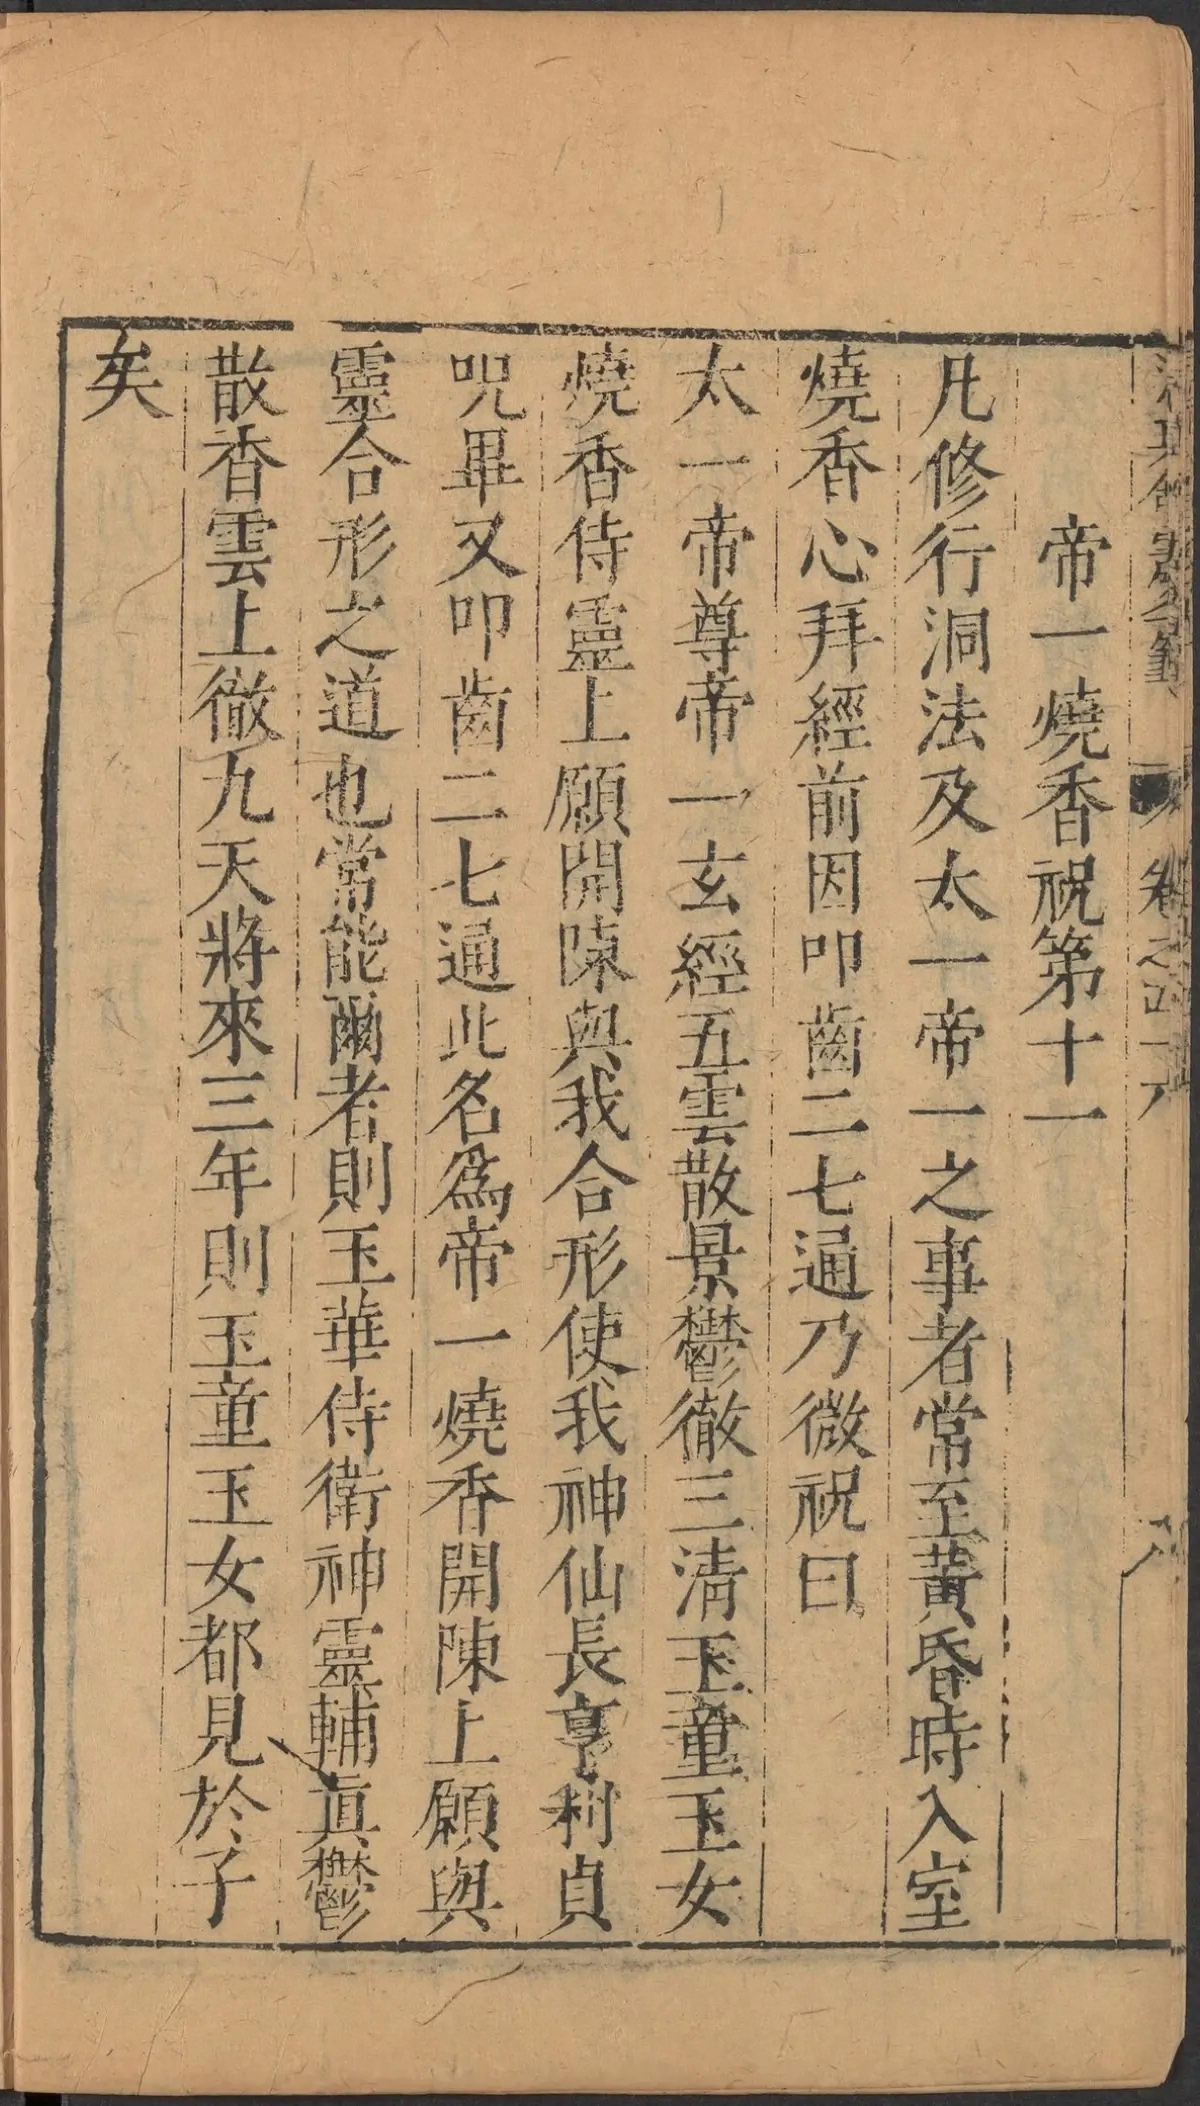 帝一燒香祝第十一
凡修行洞法及太一帝一之事者常至黃昏時入室
燒香心拜經前因叩齒二七通乃微祝曰
太一帝尊帝一玄經五雲散景鬱徹三清玉童玉女
燒香侍靈上願開陳與我合形使我神仙長亨利貞
呪畢又叩齒二七通此名爲帝一燒香開陳上願與
靈合形之道也常能爾者則玉華侍衛神靈輔眞鬱
散香雲上徹九天將來三年則玉童玉女都見於子
矣